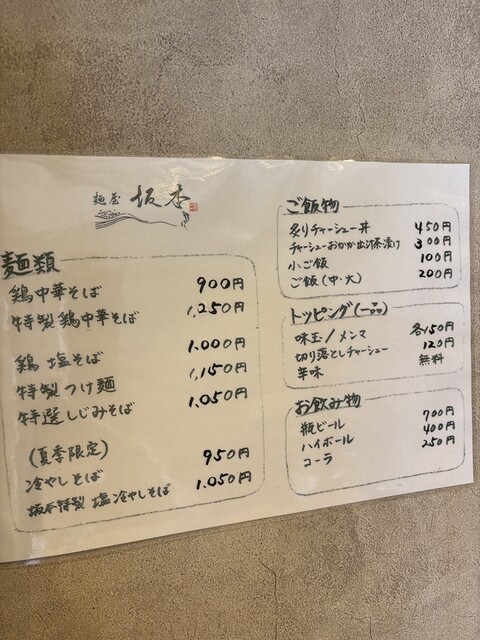 麺屋 坂本
麺類
鶏中華そば 900円
特製鶏中華そば 1,250円
鶏塩そば 1,000円
特製つけ麺 1,150円
特選しじみそば 1,050円
(夏季限定)
冷やしそば 950円
坂本特製 塩冷やしそば 1,050円
ご飯物
炙りチャーシュー丼 450円
チャーシューおかか出汁茶漬け 300円
小ご飯 100円
ご飯(中・大) 200円
トッピング(一品)
味玉/メンマ 各150円
切り落としチャーシュー 120円
辛味 無料
お飲み物
瓶ビール 700円
ハイボール 400円
コーラ 250円